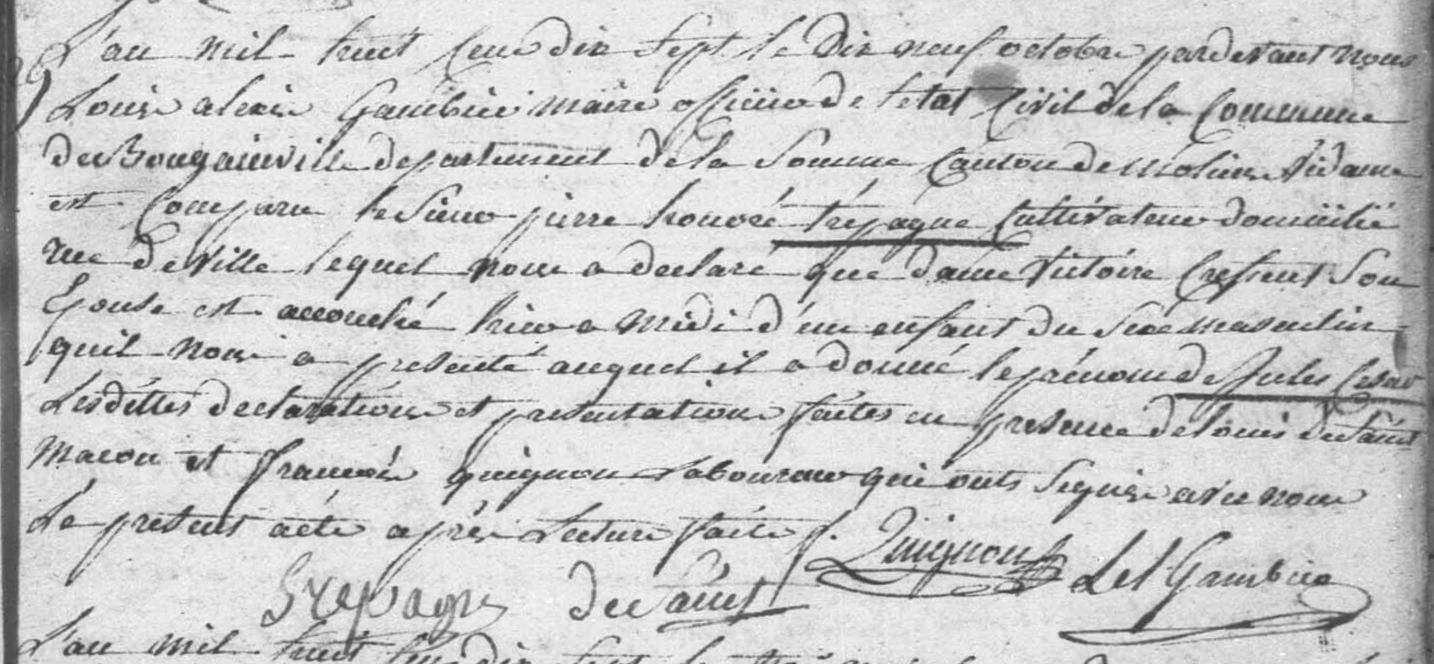 L'an mil huit Cent dix sept le Dix neuf octobre pardevant nous
Louis alexis Gambier maire officier de l'etat Civil de la Commune
de Bougainville departement de la Somme Canton de Moliens Vidame
est Comparu le Sieur pierre honoré trépagne Cultivateur domicilié
rue de ville lequel nous a declaré que dame Victoire Cressent Son
Epouse est accouché hier a midi d'un enfant du Sexe masculin
quil nous a presenté auquel il a donné le prénom de Jules Cesar
Lesdittes declarations et presentations faites en presence de Louis
macon et francois quignon Laboureur qui onts Signes avec nous
Le present acte après Lecture faite f. Quignon
Trepagne LeL Gambier
L'an mil huit Cent dix Sept le